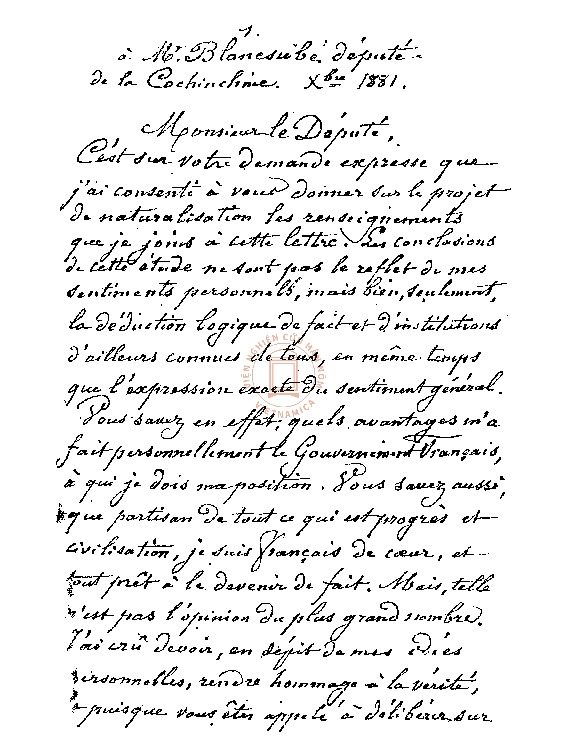 1.
à Mr. Blancsubé, député
de la Cochinchine. Xbre 1881.
Monsieur le Député,
C'est sur votre demande expresse que
j'ai consenti à vous donner sur le projet
de naturalisation les renseignements
que je joins à cette lettre. Les conclusions
de cette étude ne sont pas le reflet de mes
sentiments personnels, mais bien, seulement,
la déduction logique de fait et d'institutions
d'ailleurs connues de tous, en même temps
que l'expression exacte du sentiment général.
Vous savez en effet, quels avantages m'a
fait personnellement le Gouvernement Français,
à qui je dois ma position. Vous savez aussi,
que partisan de tout ce qui est progrès et
civilisation, je suis français de cœur, et
tout prêt à le devenir de fait. Mais, telle
n'est pas l'opinion du plus grand nombre.
J'ai crû devoir, en dépit de mes idées
personnelles, rendre hommage à la vérité,
puisque vous êtes appelé à délibérer sur
VIỆN NGHIÊN CỨU
VIETNAMICA